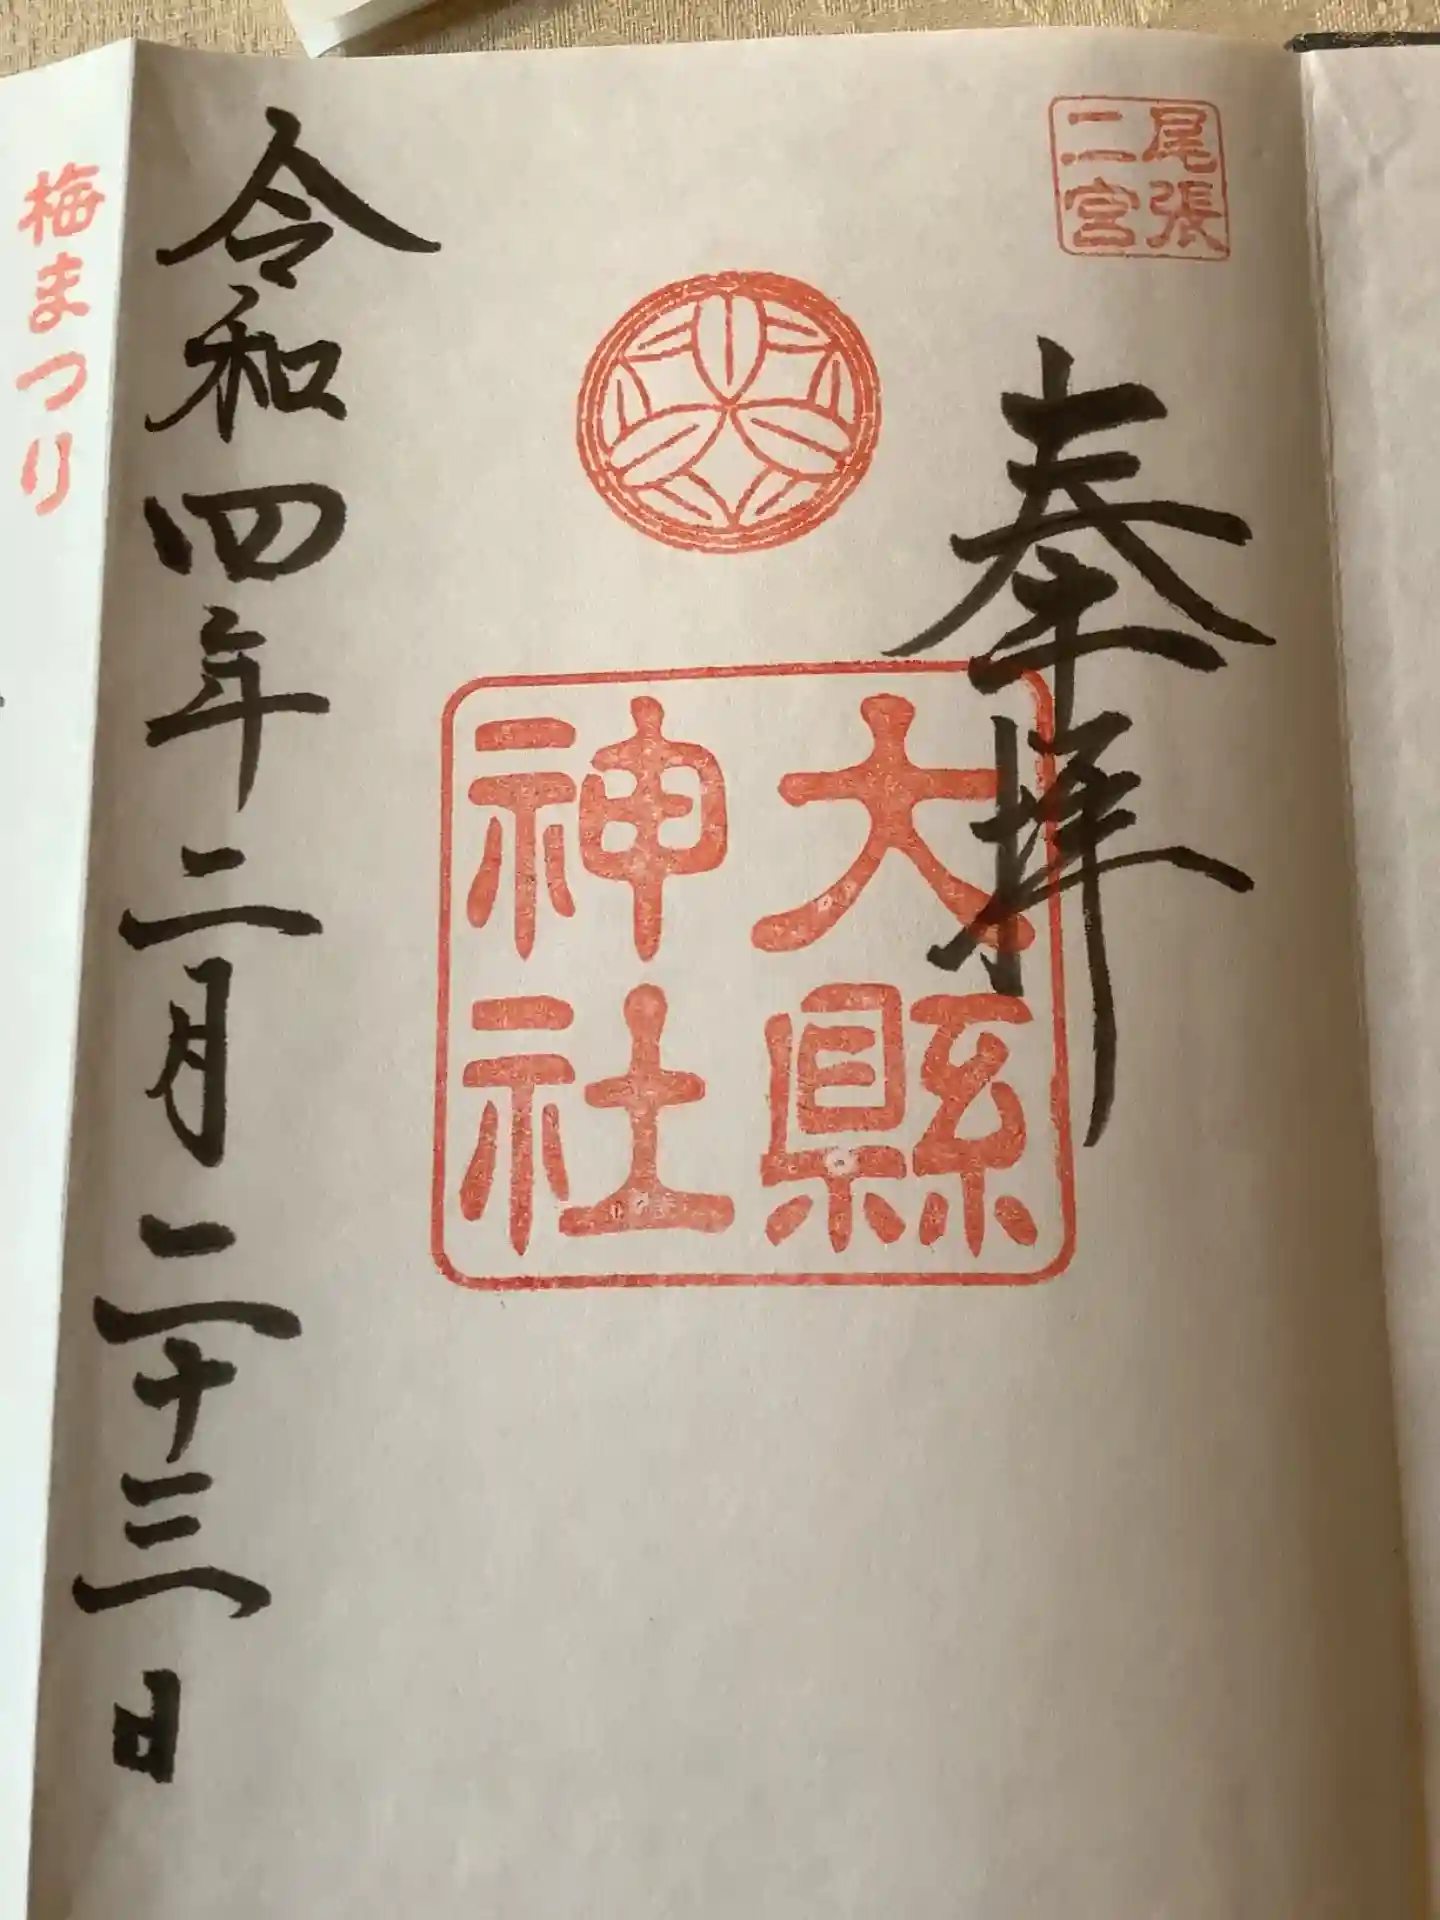 尾張
二宮
奉拝
大縣
神社
令和四年二月二十三日
梅まつり